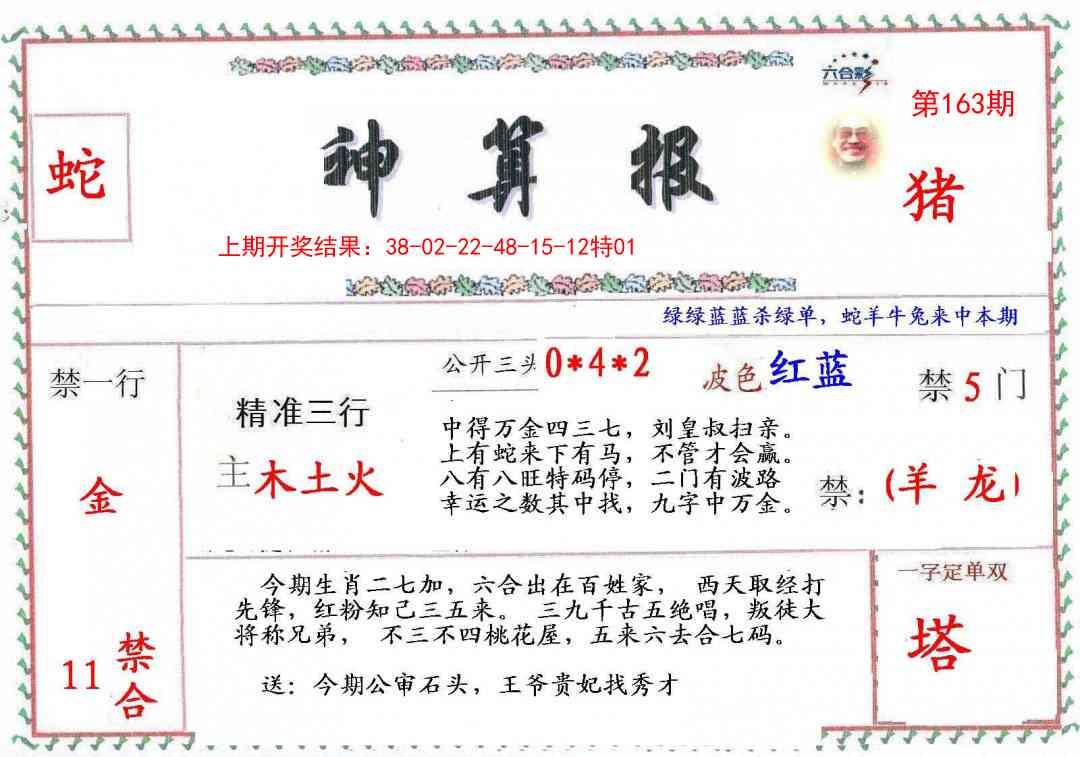 六合彩
第163期
蛇
神算报
猪
上期开奖结果：38-02-22-48-15-12特01
绿绿蓝蓝杀绿单，蛇羊牛兔来中本期
禁一行
金
11 禁合
精准三行
主木土火
公开三头0*4*2
波色红蓝
禁5门
中得万金四三七，刘皇叔扫亲。
上有蛇来下有马，不管才会赢。
八有八旺特码停，二门有波路
幸运之数其中找，九字中万金。
禁：(羊 龙)
今期生肖二七加，六合出在百姓家， 西天取经打
先锋，红粉知己三五来。 三九千古五绝唱，叛徒大
将称兄弟， 不三不四桃花屋，五来六去合七码。
送：今期公审石头，王爷贵妃找秀才
一字定单双
塔